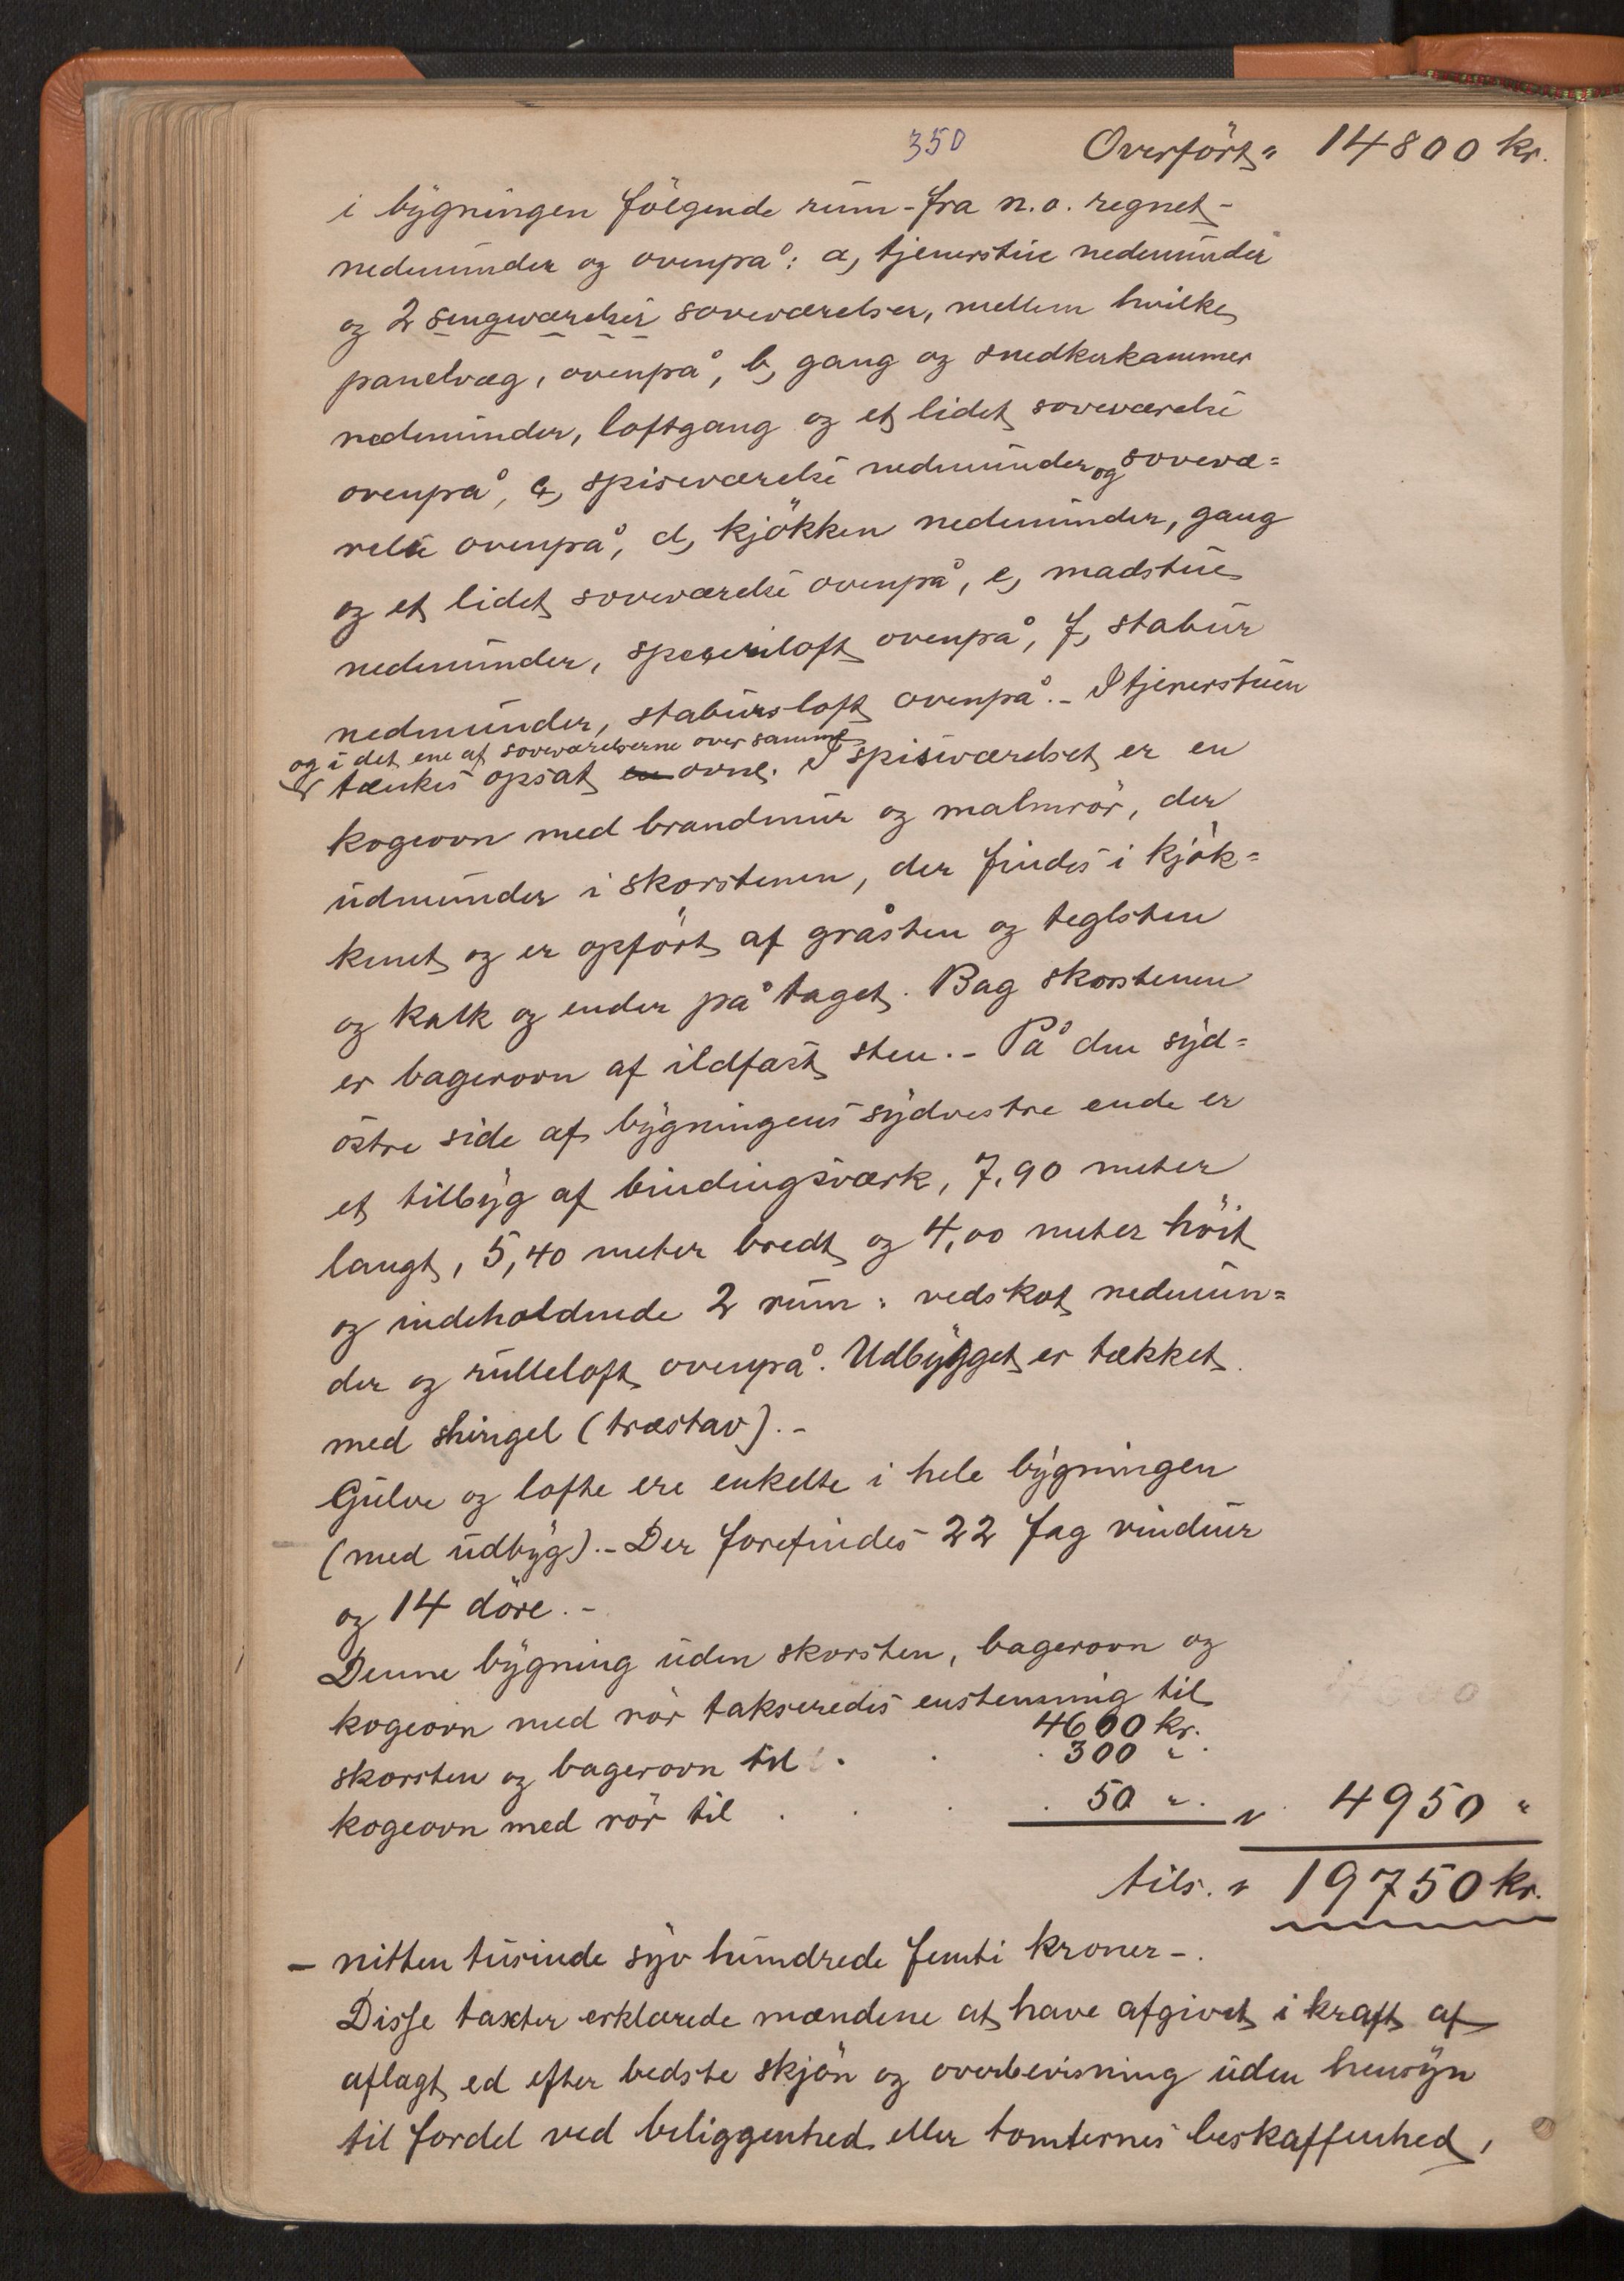 350
Overført „ 14800 kr.
i bygningen følgende rum - fra n.o. regnet -
nedenunder og ovenpå: a, tjenerstue nedenunder
og 2 sengeværelser soveværelser, mellem hvilke
panelvæg, ovenpå, b, gang og snedkerkammer
nedenunder, loftgang og et lidet soveværelse
ovenpå, c, spiseværelse nedenunder og sovevæ=
relse ovenpå, d, kjøkken nedenunder, gang
og et lidet soveværelse ovenpå, e, madstue
nedenunder, speseriloft ovenpå, f, stabur
nedenunder, stabursloft ovenpå. - I tjenerstuen
og i det ene af soveværelserne over samme
tænkes opsat en ovne. I spiseværelset er en
kogeovn med brandmur og malmrør, der
udmunder i skorstenen, der findes i kjøk=
kenet og er opført af gråsten og teglsten
og kalk og ender på taget. Bag skorstenen
er bagerovn af ildfast sten. - På den syd=
østre side af bygningens sydvestre ende er
et tilbyg af bindingsværk, 7,90 meter
langt, 5,40 meter bredt og 4,00 meter høit
og indeholdende 2 rum: vedskot nedenun=
der og rulleloft ovenpå. Udbygget er tækket
med shingel (træstav). -
Gulve og lofte ere enkelte i hele bygningen
(med udbyg). - Der forefindes 22 fag vinduer
og 14 døre. -
Denne bygning uden skorsten, bagerovn og
kogeovn med rør takseredes enstemmig til
4600 kr.
skorsten og bagerovn til . . . 300 „ .
kogeovn med rør til . . . . 50 „ . „ 4950 „
tils. „ 19750 kr.
- nitten tusinde syv hundrede femti kroner -.
Disse taxter erklærede mændene at have afgivet i kraft af
aflagt ed efter bedste skjøn og overbevisning uden hensyn
til fordel ved beliggenhed eller tomternes beskaffenhed,